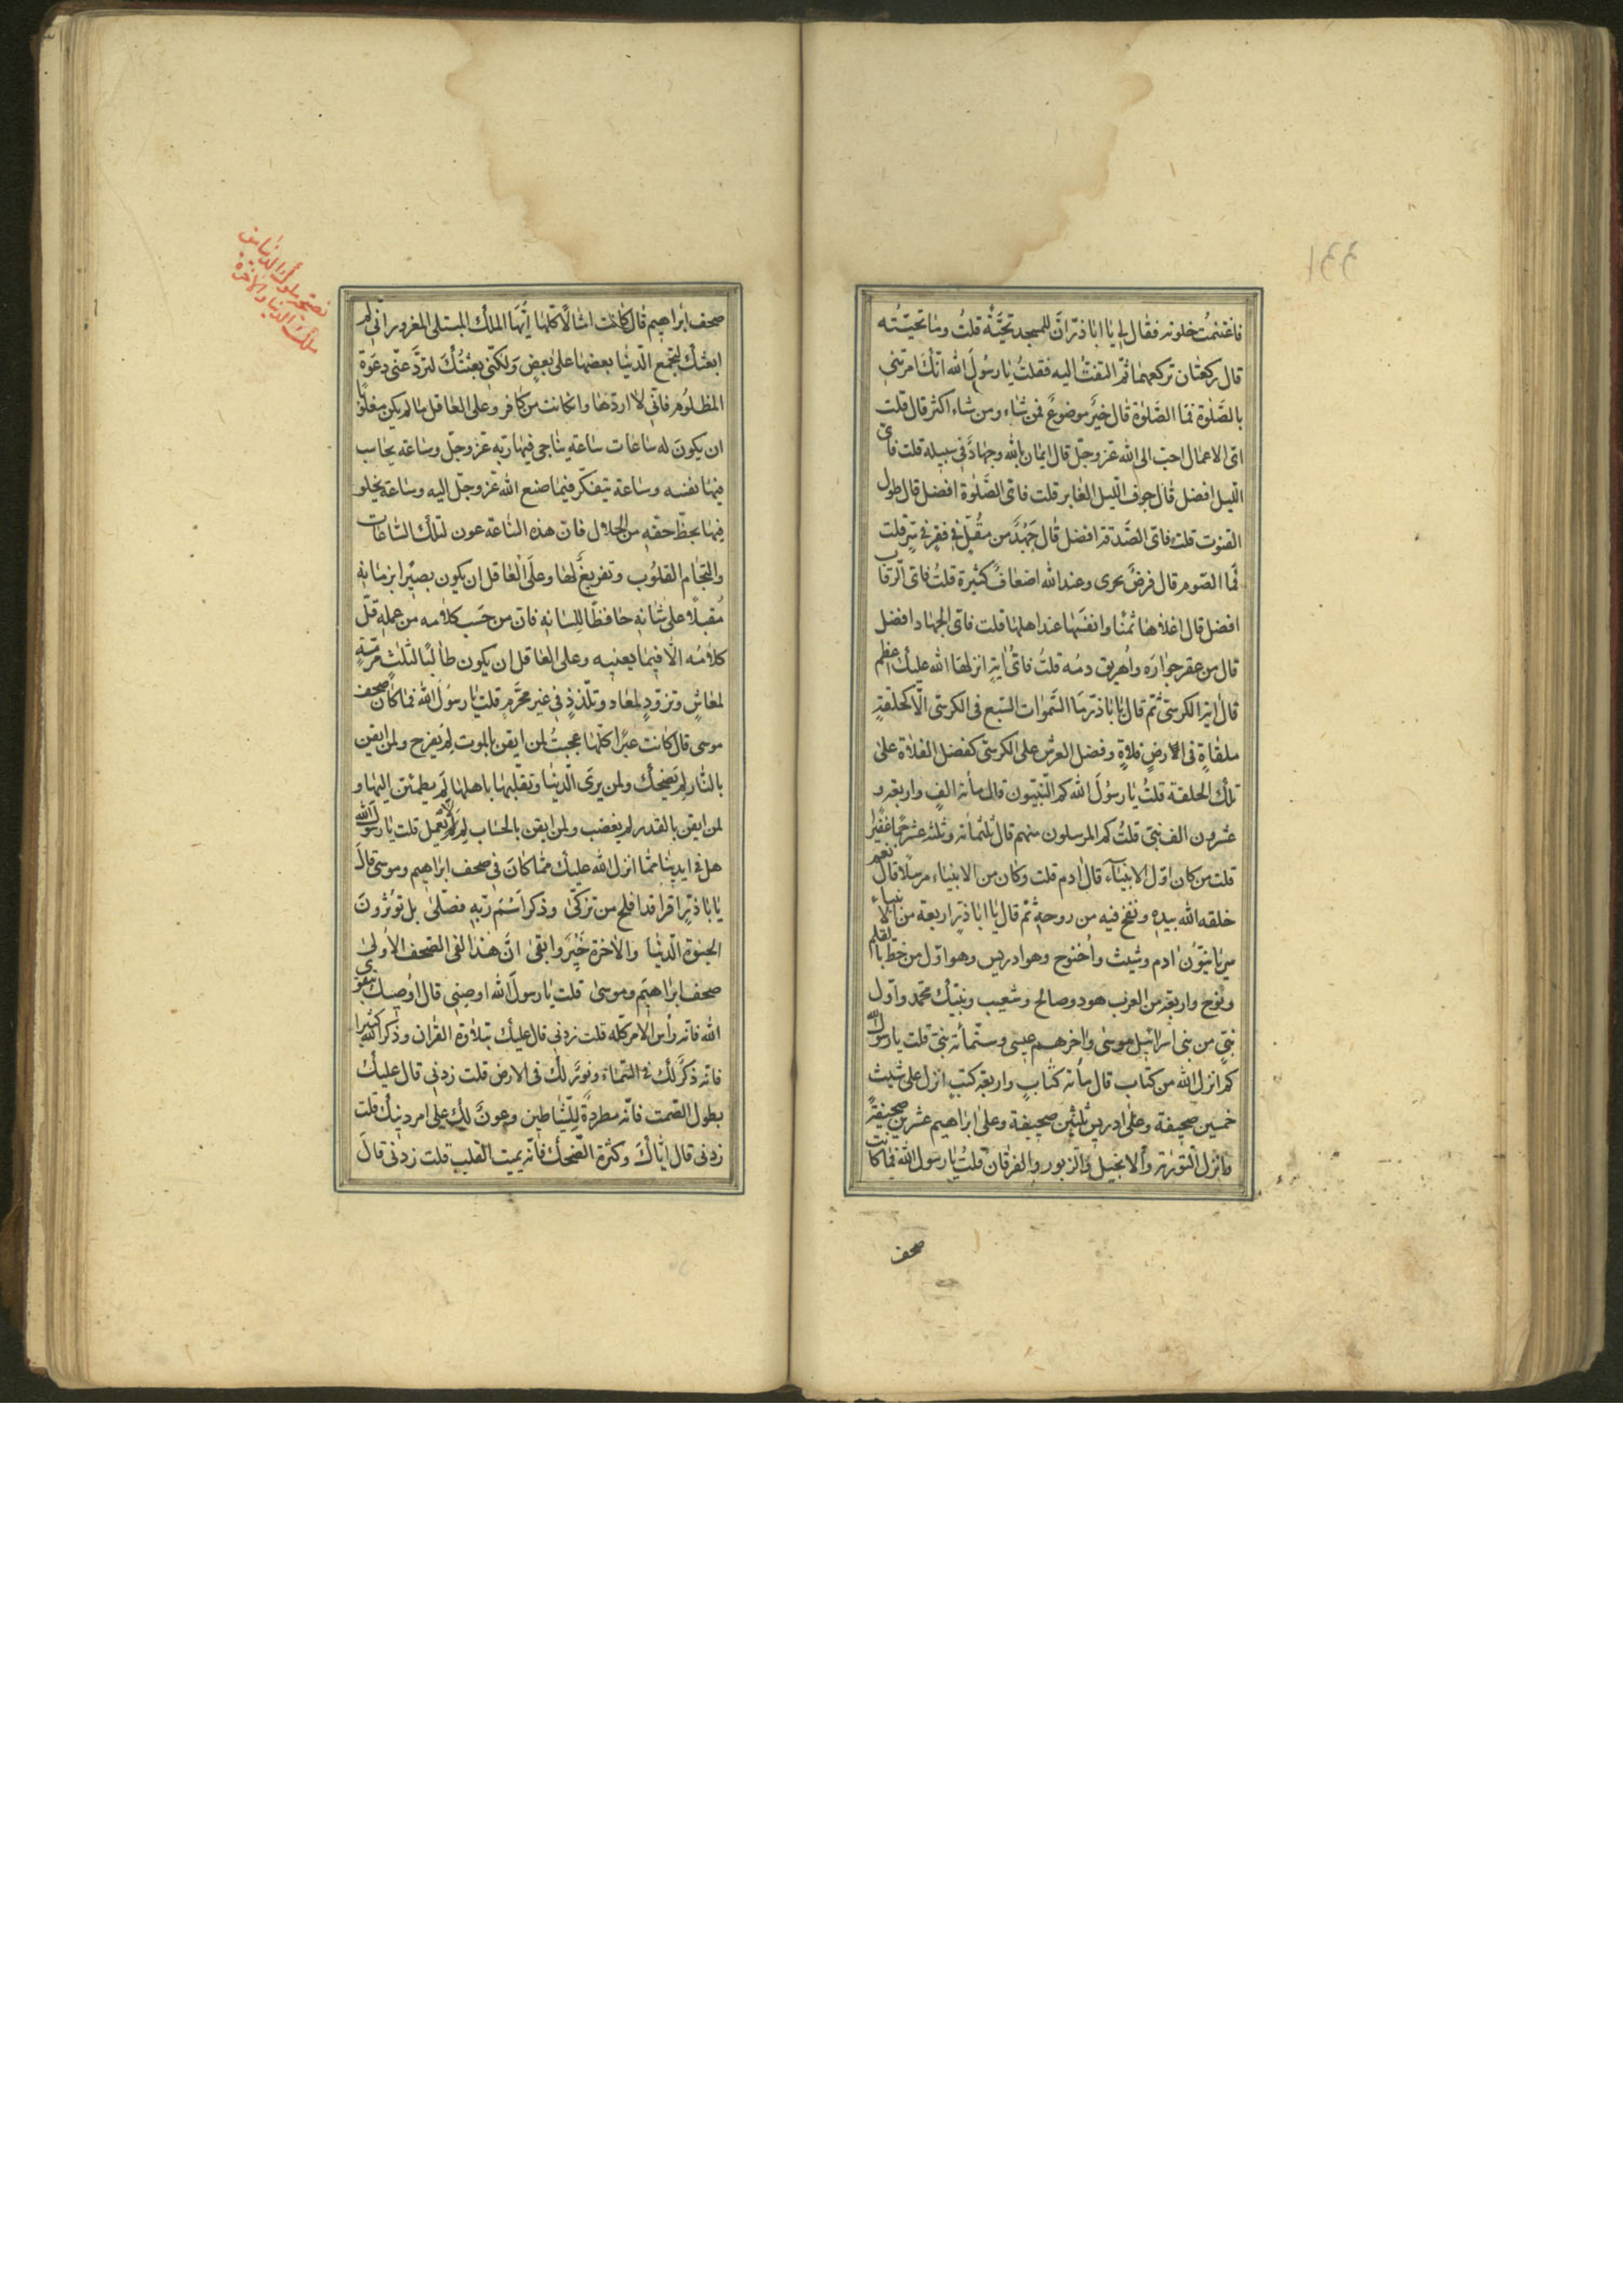 فاغتنمتُ خلوته فقال لي يا ابا ذرّ انّ للمسجد تحيّةً قلتُ وما تحيّته
قال ركعتان تركعهما ثمّ التفتّ اليه فقلتُ يا رسُولَ الله انّك امرتني
بالصَّلوة فما الصَّلوة قال خيرٌ موضوعٌ فمن شاء ومن شاء اكثر قال قلت
اىّ الاعمال احبّ الى الله عزّ وجلّ قال ايمان بالله وجهادٌ في سبيله قلت فاىّ
الليل افضل قال جوف الليل الغابر قلت فاىّ الصَّلوة افضل قال طول
القنوت قلت فاىّ الصَّدقة افضل قال جَهْدٌ من مُقِلّ في فقير في سرّ قلت
فما الصّوم قال فرضٌ مجزى وعند الله اضعافٌ كثيرة قلتُ فاىّ الرّقاب
افضل قال اغلاها ثمنًا وانفسَها عند اهلها قلت فاىّ الجهاد افضل
قال من عقر جوادَه واُهريق دمُه قلتُ فاىّ اية انزلها الله عليك اعظم
قال اية الكرسىّ ثمّ قال يا اباذرّ ما السّموات السّبع فى الكرسىّ الّا كحلقةٍ
ملقاةٍ فى الارض فلاةٍ وفضل العرش على الكرسىّ كفضل الفلاة على
تلك الحلقة قلتُ يا رسُولَ الله كم النّبيّون قال مأئة الفٍ واربعة و
عشرون الف نبىّ قلتُ كم المرسلون منهم قال ثلثمائة وثلثة عشر جمّا غفيرا
قلت من كان اوّل الانبيآء قال ادم قلت وكان من الانبياء مرسلًا قال نعم
خلقه الله بيده ونفخ فيه من روحه ثمّ قال يا ابا ذرّ اربعة من الانبياء
سريانيّون ادم وشيث واُخنوخ وهو ادريس وهو اوّل من خطّ بالقلم
ونوح واربعة من العرب هود وصالح وشعيب ونبيّك محمّد واوّل
نبىّ من بنى اسرائيل موسى واخرهم عيسى وستّمأئة نبىّ قلت يا رسول الله
كم انزل الله من كتاب قال مأئة كتابٍ واربعة كتبٍ انزل على شيث
خمسين صحيفة وعلى ادريس ثلثين صحيفة وعلى ابراهيم عشرين صحيفةً
وانزل التّورية والانجيل والزّبور والفرقان قلتُ يا رسول الله فما كانت
صحف
صحف ابراهيم قال كانت امثالًا كلّها ايّها الملك المبتلى المغرور انّى لم
ابعثك لتجمع الدّنيا بعضها على بعض ولكنّى بعثتُكَ لتردّ عنّى دعوة
المظلُوم فانّى لا اردّها وان كانت من كافر وعلى العاقل ما لم يكن مغلوبًا
ان يكونَ له ساعات ساعة يناجى فيها ربّه عزّ وجلّ وساعة يحاسب
فيها نفسه وساعة يتفكّر فيما صنع الله عزّ وجلّ اليه وساعة يخلو
فيها بحظّ حقّه من الحلال فانّ هذه السّاعة عون لتلك السّاعات
والتجمام القلُوب وتفريغٌ لها وعلى العاقل ان يكون بصيرًا بزمانه
مُقبلًا على شانه حافظًا للسانه فانّ من حَسب كلامه من عمله قلّ
كلامُه الّا فيما يعنيه وعلى العاقل ان يكون طالبًا لثلث مرمّةٍ
لمعاشٍ وتزوّدٍ لمعاد وتلذّذٍ في غير محرّمٍ قلت يا رسُول الله فما كان صحف
موسى قال كانت عبرًا كلّها عجبتُ لمن ايقن بالموت لِمَ يفرح ولمن ايقن
بالنّار لِمَ يضحك ولمن يرى الدّنيا وتقلّبها باهلها لِمَ يطمئنّ اليها و
لمن ايقن بالقدر لم يغضب ولمن ايقن بالحساب لِمَ لا يعمل قلت يا رسولَ الله
هل في ايدينا ممّا انزل الله عليك ممّا كانَ في صحف ابراهيم وموسى قالَ
يا باذرّ اقرا قد افلح من تزكّى وذكر اسْمَ ربّه فصلّى بل تؤثرونَ
الحيوةَ الدّنيا والاخرة خيرٌ وابقى انّ هذا لفى الصّحف الاُولى
صحف ابراهيم وموسى قلت يا رسولَ الله اوصنى قال اُوصيك بتقوى
الله فانّه رأس الامر كلّه قلت زدنى قال عليك بتلاوة القران وذكر الله كثيرا
فانّه ذكرٌ لك فى السّماء ونورٌ لك فى الارض قلت زدنى قال عليك
بطول الصّمت فانّه مطردةٌ للشّياطين وعونٌ لك على امر دينك قلت
زدنى قال ايّاكَ وكثرة الضّحك فانّه يميت القلب قلت زدنى قالَ